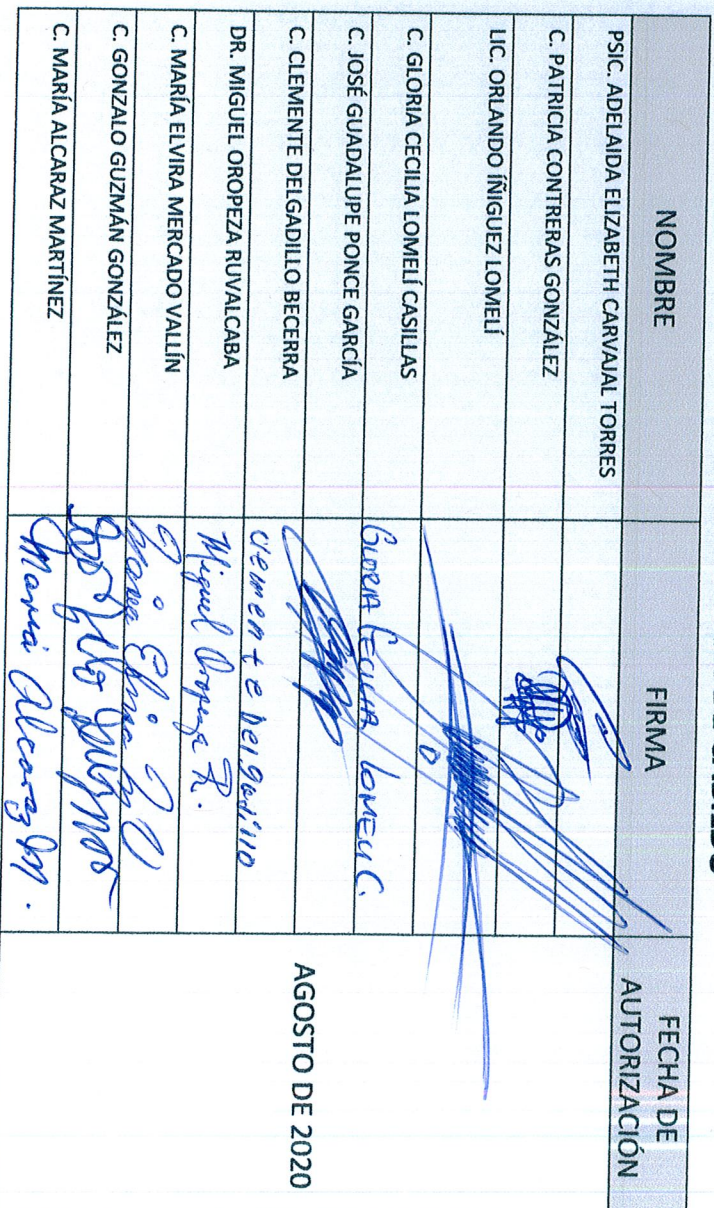 NOMBRE FIRMA FECHA DE AUTORIZACIÓN
PSIC. ADELAIDA ELIZABETH CARVAJAL TORRES
C. PATRICIA CONTRERAS GONZÁLEZ
LIC. ORLANDO ÍÑIGUEZ LOMELÍ
C. GLORIA CECILIA LOMELÍ CASILLAS GLORIA CECILIA LOMELI C.
C. JOSÉ GUADALUPE PONCE GARCÍA
C. CLEMENTE DELGADILLO BECERRA clemente Delgadillo
DR. MIGUEL OROPEZA RUVALCABA Miguel Oropeza R.
C. MARÍA ELVIRA MERCADO VALLÍN
C. GONZALO GUZMÁN GONZÁLEZ
C. MARÍA ALCARAZ MARTÍNEZ María Alcaraz M.
AGOSTO DE 2020